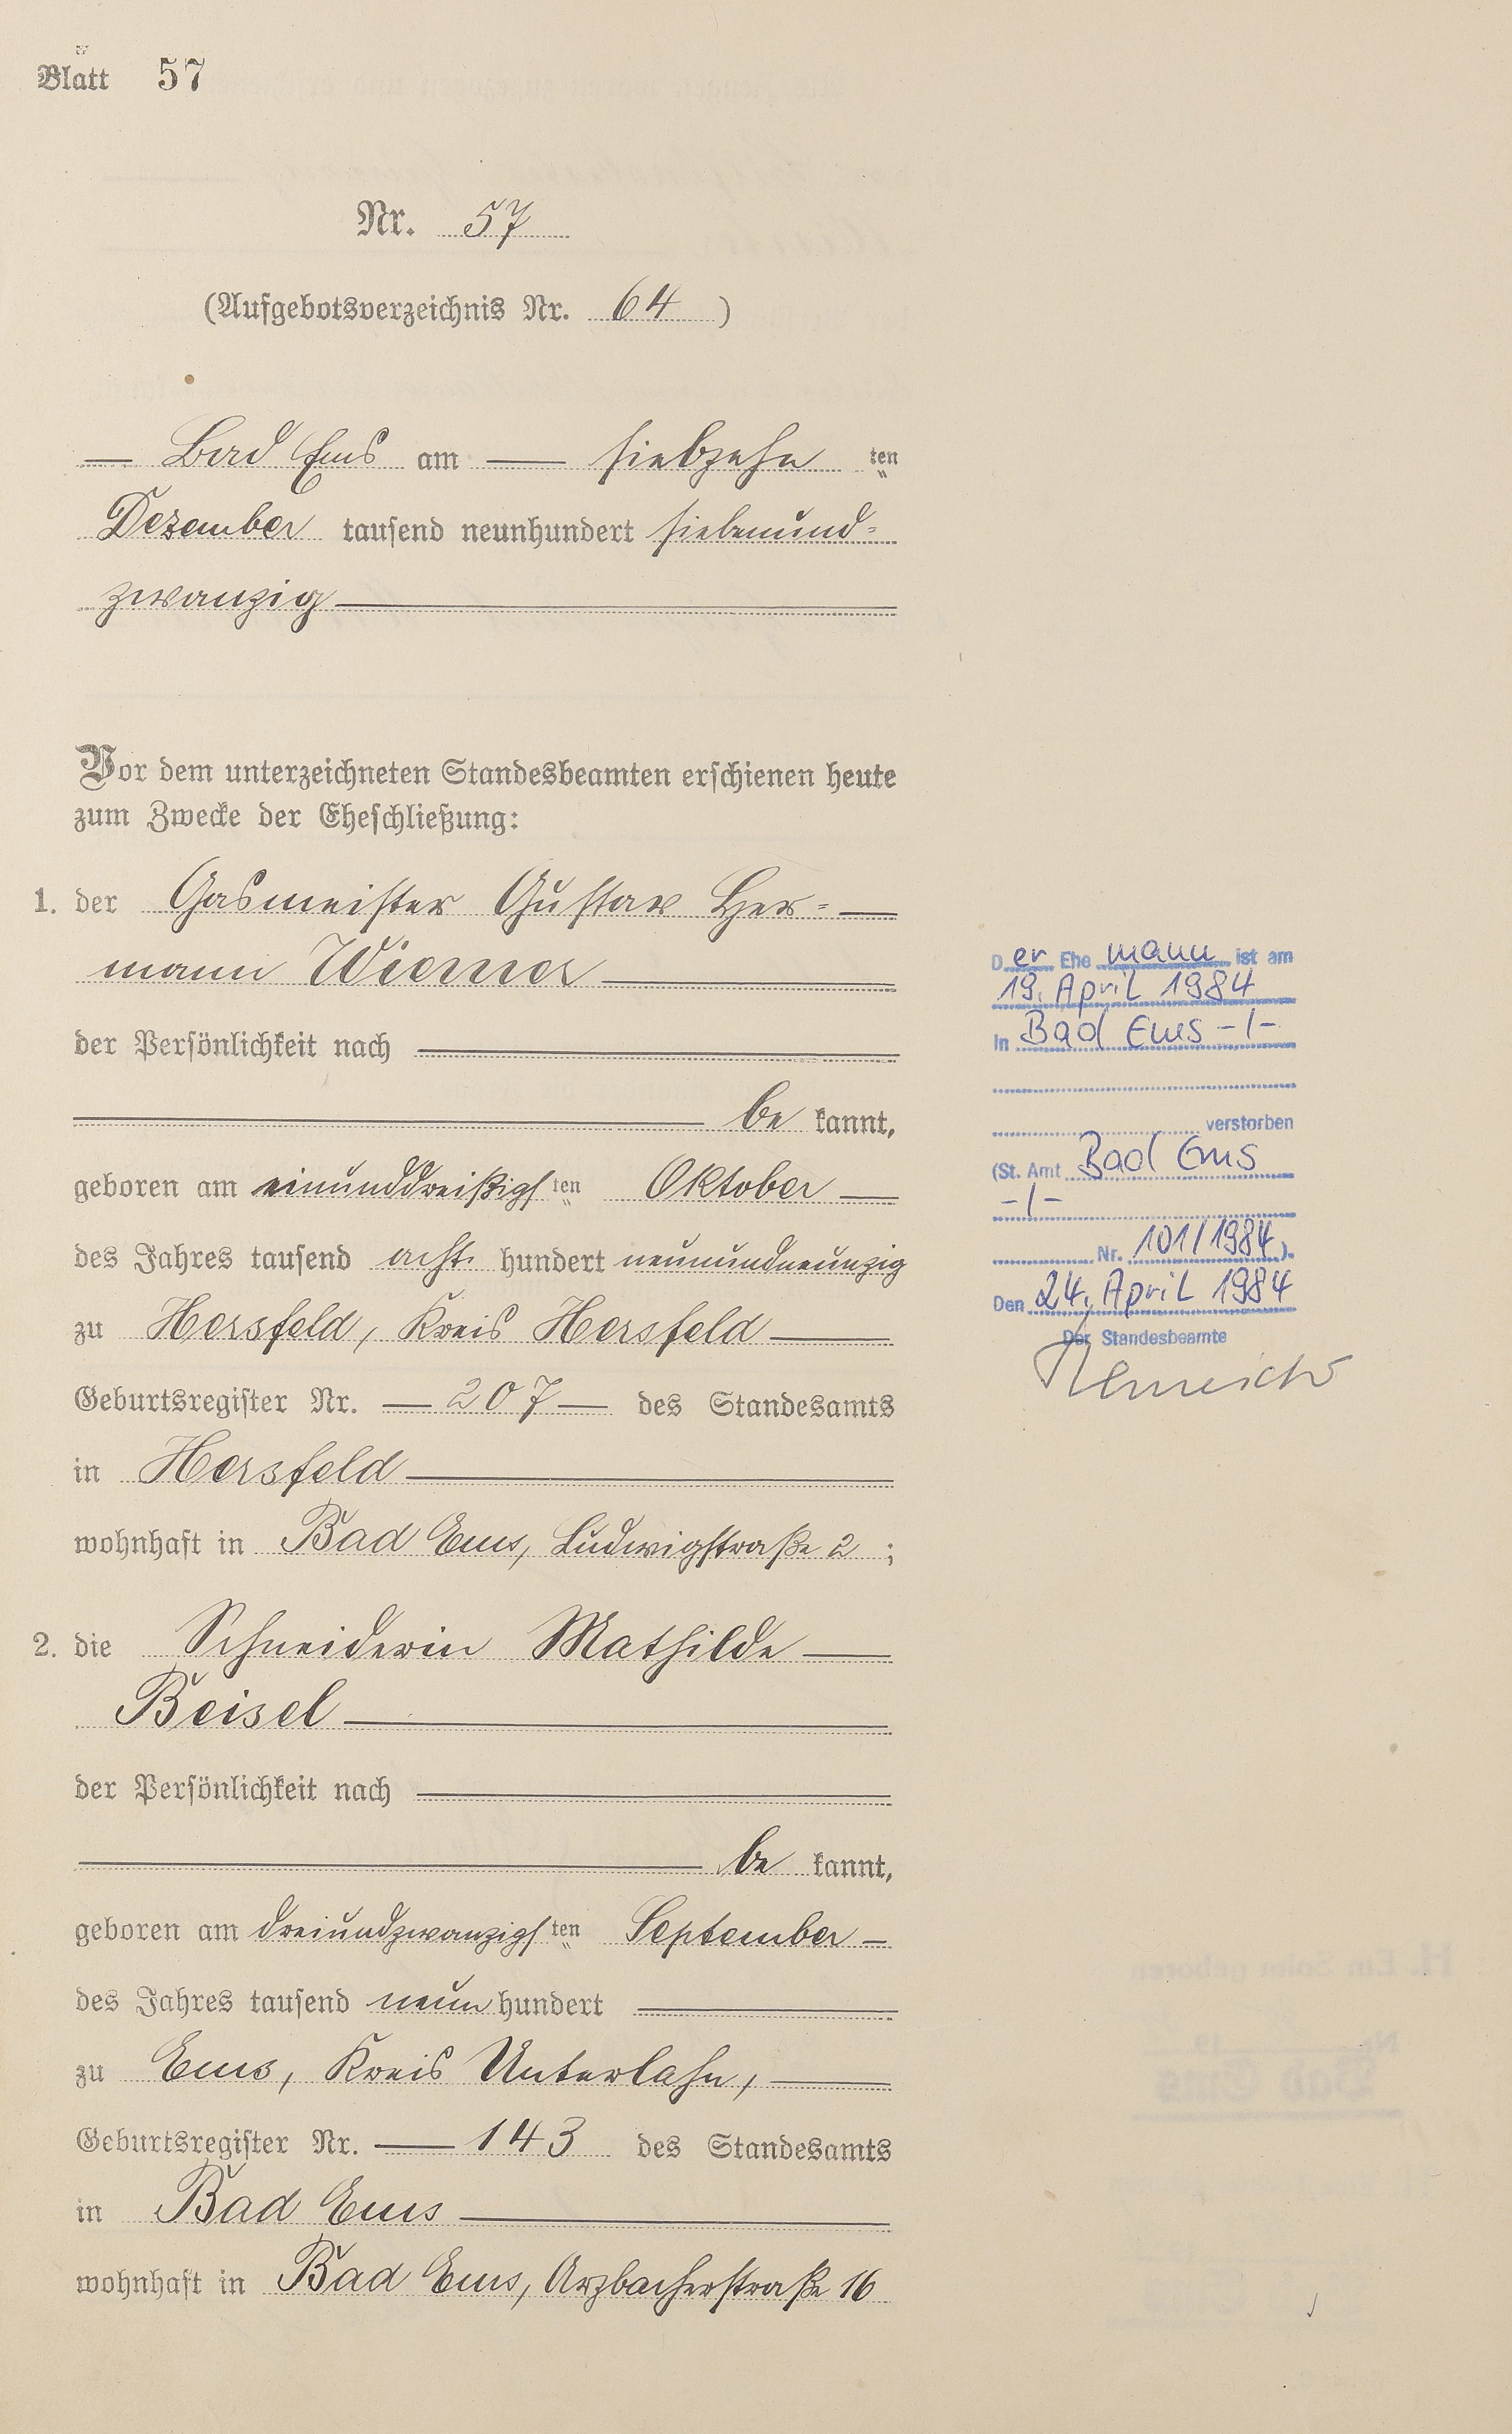 Blatt 57
Nr. 57
(Aufgebotsverzeichnis Nr. 64 )
— Bad Ems am — siebzehn ten
Dezember tausend neunhundert siebenund-
zwanzig —
Vor dem unterzeichneten Standesbeamten erschienen heute
zum Zwecke der Eheschließung:
1. der Gasmeister Gustav Her- —
mann Wiemer —
der Persönlichkeit nach —
— be kannt,
geboren am einunddreißigsten Oktober —
des Jahres tausend acht hundert neunundneunzig
zu Hersfeld, Kreis Hersfeld —
Geburtsregister Nr. — 207 — des Standesamts
in Hersfeld —
wohnhaft in Bad Ems, Ludwigstraße 2 ;
2. die Schneiderin Mathilde —
Beisel —
der Persönlichkeit nach —
— be kannt,
geboren am dreiundzwanzigsten September —
des Jahres tausend neun hundert —
zu Ems, Kreis Unterlahn, —
Geburtsregister Nr. — 143 des Standesamts
in Bad Ems —
wohnhaft in Bad Ems, Arzbacherstraße 16
Der Ehemann ist am
19. April 1984
in Bad Ems -/-
verstorben
(St. Amt Bad Ems
-/-
Nr. 101/1984).
Den 24. April 1984
Der Standesbeamte